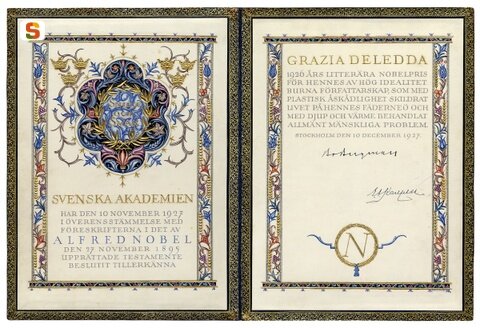 S
SVENSKA AKADEMIEN
HAR DEN 10 NOVEMBER 1927
I ÖVERENSSTÄMMELSE MED
FÖRESKRIFTERNA I DET AV
ALFRED NOBEL
DEN 27 NOVEMBER 1895
UPPRÄTTADE TESTAMENTE
BESLUTIT TILLERKÄNNA
GRAZIA DELEDDA
1926 ÅRS LITTERÄRA NOBELPRIS
FÖR HENNES AV HÖG IDEALITET
BURNA FÖRFATTARSKAP, SOM MED
PLASTISK ÅSKÅDLIGHET SKILDRAT
LIVET PÅ HENNES FÄDERNEÖ OCH
MED DJUP OCH VÄRME BEHANDLAT
ALLMÄNT MÄNSKLIGA PROBLEM.
STOCKHOLM DEN 10 DECEMBER 1927.
N